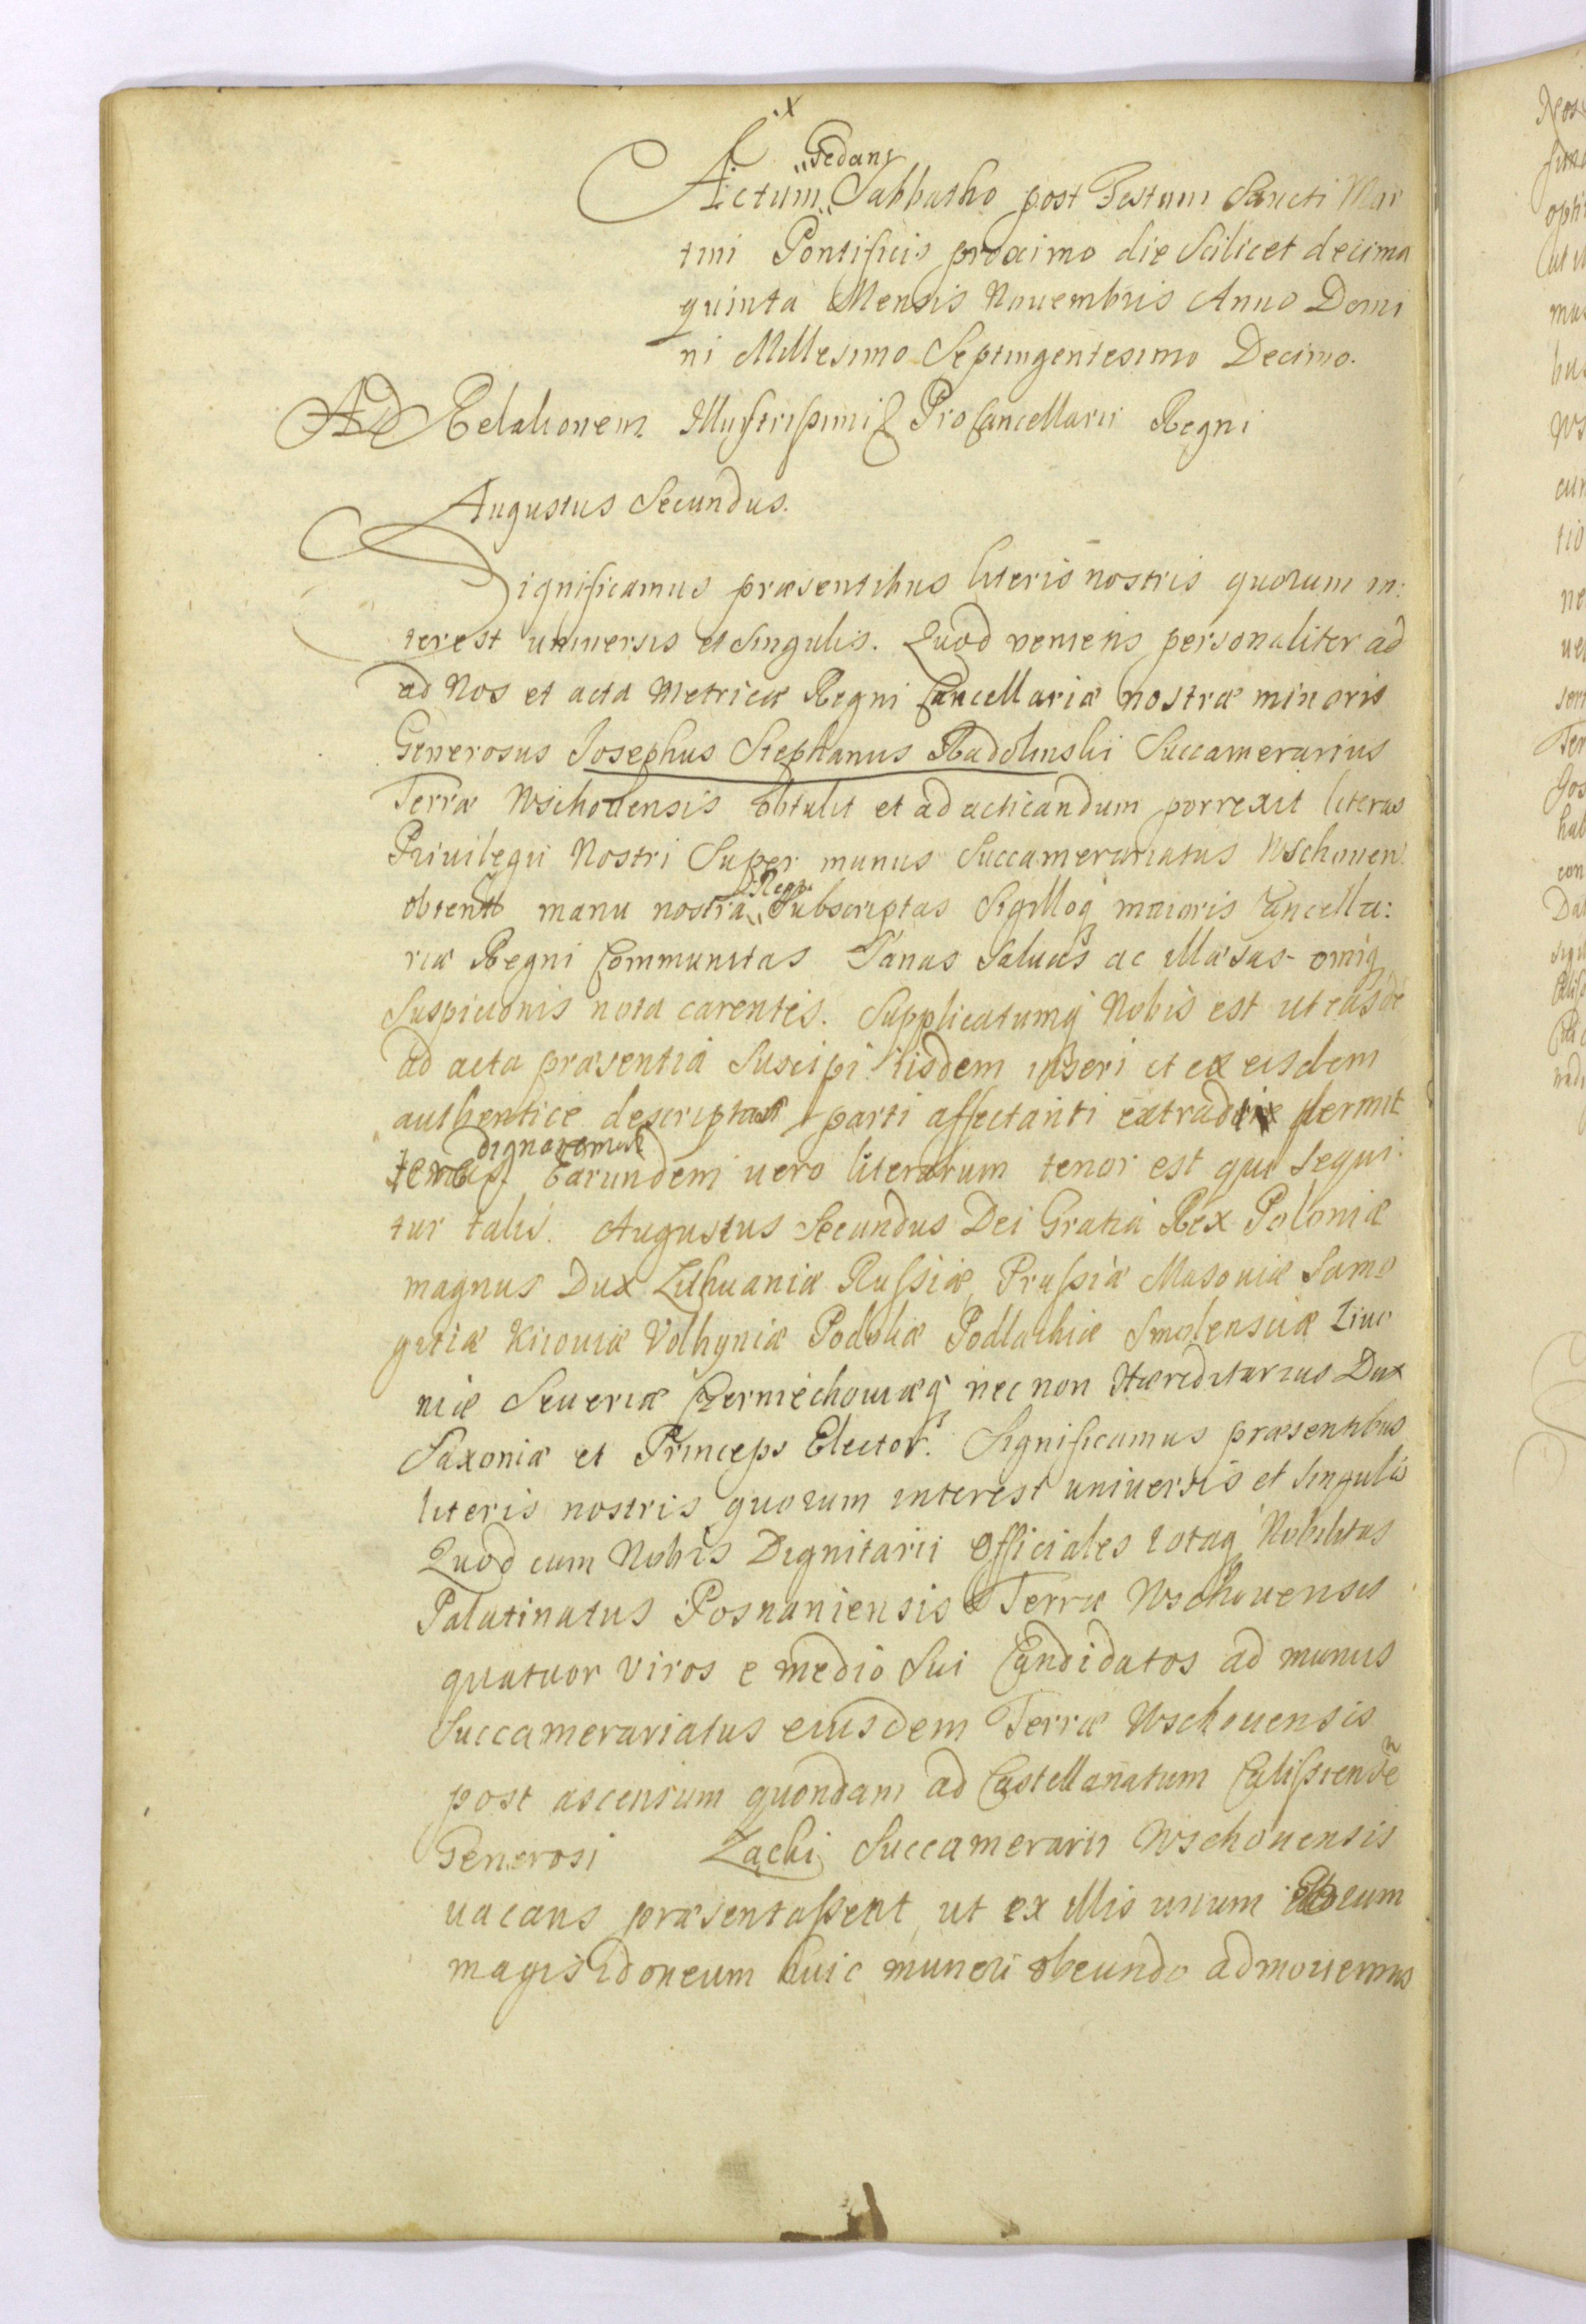 x
Gedani
Actum Sabbatho post Festum Sancti Mar
tini Pontificis proximo die Scilicet decima
quinta Mensis Nouembris Anno Domi
ni Millesimo Septingentesimo Decimo.
Ad Relationem Illustrissimi ProCancellarii Regni
Augustus Secundus.
Significamus præsentibus literis nostris quorum in:
terest uniuersis et Singulis. Quod veniens personaliter ad
ad Nos et acta Metricæ Regni Cancellariæ nostræ minoris
Generosus Josephus Stephanus Radolinski Succamerarius
Terræ Wschouensis obtulit et ad acticandum porrexit literas
Priuilegii Nostri Super munus Succamerariatus Wschouen.
obtent manu nostra Regia Subscriptas Sigilloq maioris Cancella:
riæ Regni Communitas Sanas Saluas ac illæsas omiq
Suspicionis nota carentes. Supplicatumq Nobis est ut easde
ad acta præsentia Suscipi iisdem inseri et ex eisdem
authentice descriptas parti affectanti extradi permit
dignaremur
Earundem uero literarum tenor est qui Sequi:
tur talis. Augustus Secundus Dei Gratia Rex Poloniæ
magnus Dux Lithuaniæ Russiæ, Prussiæ Masouiæ Samo
gitiæ Kiiouiæ Volhyniæ Podoliæ Podlachiæ Smolensciæ Liuo
niæ Seueriæ Czerniechouiæq nec non Hæreditarius Dux
Saxoniæ et Princeps Elector. Significamus præsentibus
literis nostris quorum interest uniuersis et Singulis
Quod cum Nobis Dignitarii Officiales totaq Nobilitas
Palatinatus Posnaniensis et Terræ Wschouensis
quatuor viros e medio Sui Candidatos ad munus
Succamerariatus eiusdem Terræ Wschouensis
post ascensum quondam ad Castellanatum Calissiensē
Generosi Zacki Succamerarii Wschouensis
uacans præsentassent, ut ex illis unum eum
magis idoneum huic muneri obeundo admouemus